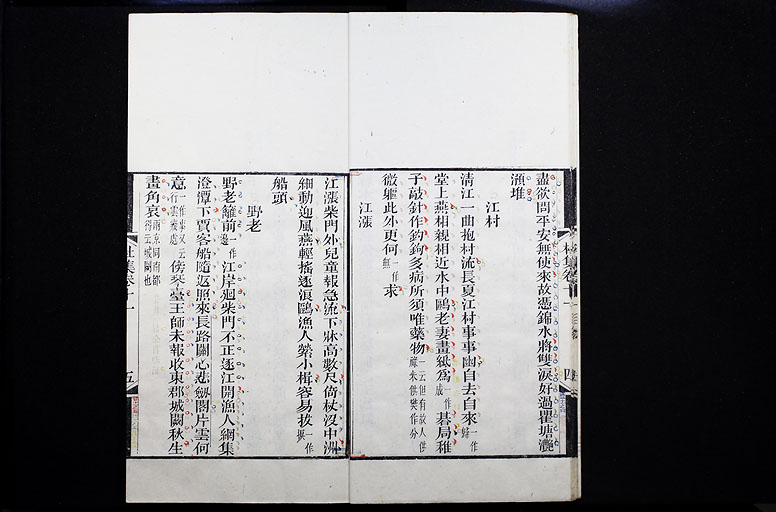 盡欲問平安無使來故憑錦水將雙淚好過瞿塘灩
澦堆
江村
清江一曲抱村流長夏江村事事幽自去自來一作歸
堂上燕相親相近水中鷗老妻畫紙為一作成碁局稚
子敲針作釣鉤多病所須唯藥物一云但有故人供祿米供樊作分
微軀此外更何一作無求
江漲
江漲柴門外兒童報急流下牀高數尺倚杖沒中洲
細動迎風燕輕搖逐浪鷗漁人縈小楫容易拔一作捩
船頭
野老
野老籬前一作邊江岸迴柴門不正逐江開漁人網集
澄潭下賈客船隨返照來長路關心悲劒閣片雲何
意一作事又云行雲幾處傍琴臺王師未報收東郡城闕秋生
畫角哀
杜集卷十一
五
四